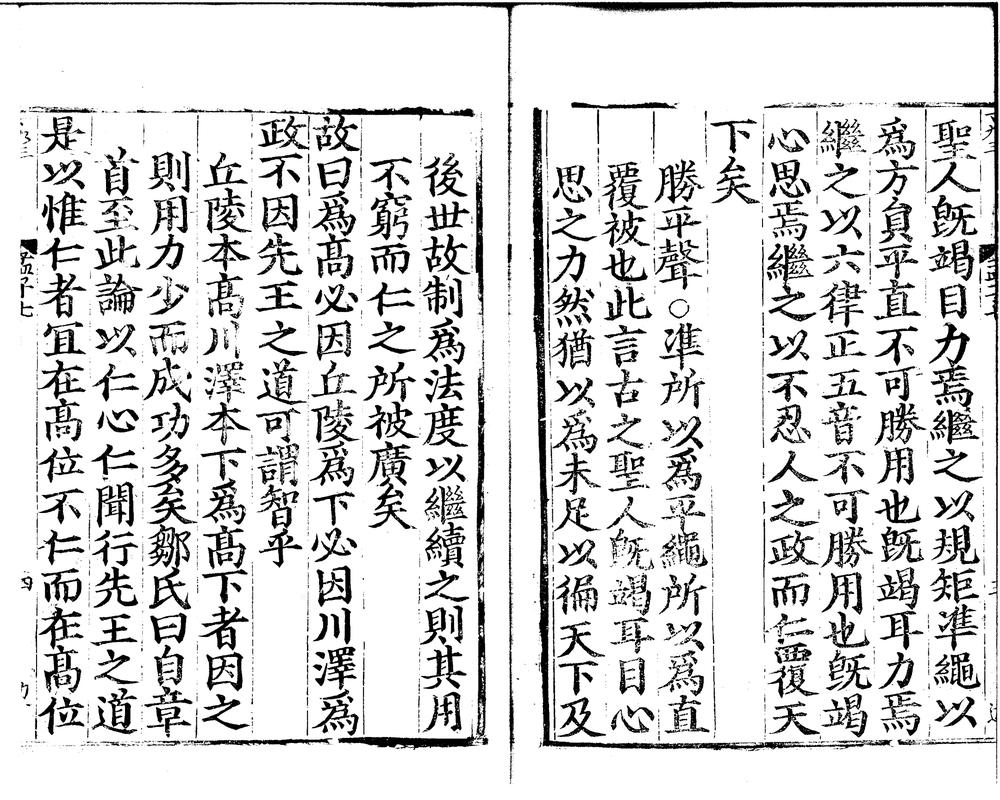 聖人既竭目力焉繼之以規矩準繩以
爲方員平直不可勝用也既竭耳力焉
繼之以六律正五音不可勝用也既竭
心思焉繼之以不忍人之政而仁覆天
下矣
勝平聲○準所以爲平繩所以爲直
覆被也此言古之聖人既竭耳目心
思之力然猶以爲未足以徧天下及
後世故制爲法度以繼續之則其用
不窮而仁之所被廣矣
故曰爲髙必因丘陵爲下必因川澤爲
政不因先王之道可謂智乎
丘陵本髙川澤本下爲髙下者因之
則用力少而成功多矣鄒氏曰自章
首至此論以仁心仁聞行先王之道
是以惟仁者宜在髙位不仁而在髙位
孟子七
四